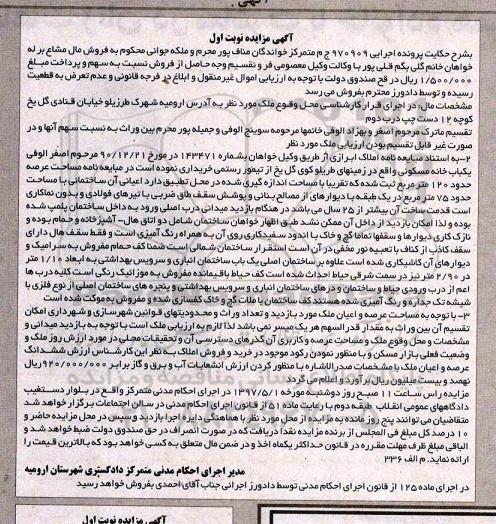 آگهی
آگهی مزایده نوبت اول
بشرح حکایت پرونده اجرایی ۹۷۰۹۰۹ ج م متمرکز خواندگان مناف پور محرم و ملکه جوانی محکوم به فروش مال مشاع بر له
خواهان خانم گلی بگم قلی پور با وکالت وکیل معصومی فر و تقسیم وجه حاصل از فروش نسبت به سهم و پرداخت مبلغ
۱/۵۰۰/۰۰۰ ریال در حق صندوق دولت با توجه به ارزیابی اموال غیرمنقول و ابلاغ در فرجه قانونی و عدم تعرض به قطعیت
رسیده و توسط دادورز محترم بفروش می رسد
مشخصات مال: در اجرای قرار کارشناسی محل وقوع ملک مورد نظر به آدرس ارومیه شهرک طرزیلو خیابان قنادی گل یخ
کوچه ۱۲ دست چپ درب دوم
تقسیم ماترک مرحوم اصغر و بهزاد الوفی خانمها مرحومه سوینج الوفی و جمیله پور محرم بین وراث به نسبت سهم آنها و در
صورت غیر قابل تقسیم ارزیابی ملک مورد نظر
۲-به استناد مبایعه نامه املاک ابرازی از طریق وکیل خواهان بشماره ۱۴۳۴۷۱ در مورخ ۹۰/۱۲/۲۱ مرحوم اصغر الوفی
یکباب خانه مسکونی واقع در زمینهای طرزیلو کوی گل یخ از تیمور رستمی خریداری نموده است در مبایعه نامه مساحت عرصه
حدود ۱۲۰ متر مربع ثبت شده که تقریبا با مساحت اندازه گیری شده در محل تطبیق دارد اعیانی آن ساختمانی با مساحت
حدود ۷۵ متر مربع در یک طبقه با دیوارهای از مصالح بنایی و پوشش سقف طاق ضربی با تیر های فولادی و بدون نماکاری
است قدمت ساخت آن بیشتر از ۲۵ سال می باشد در هنگام بازدید میدانی درب اصلی ورود به داخل ساختمان پلمپ شده
بوده و لذا امکان بازدید از داخل آن ممکن نشد طبق اظهار خواهان ساختمان شامل دو اتاق هال- آشپزخانه و حمام بوده و
نازک کاری دیوارها و سقفها تماما گچ و خاک با اندود سفیدکاری روی آن به همراه رنگ آمیزی است و فقط سقف هال دارای
سقف کاذب از کناف با تعبیه نور مخفی در آن است استقرار ساختمان شمالی است ضمنا کف حمام مفروش به سرامیک و
دیوارهای آن کاشیکاری شده است علاوه بر ساختمان اصلی یک باب ساختمان انباری و سرویس بهداشتی به ابعاد ۱/۱۰ متر
در ۲/۹۰ متر نیز در سمت شرقی حیاط احداث شده است کف حیاط باقیمانده مفروش به موزائیک رنگی است کلیه درب ها
اعم از درب ورودی حیاط و ساختمان و درهای ساختمان انباری و سرویس بهداشتی و پنجره های ساختمان اصلی از نوع فلزی با
شیشه تک جداره و رنگ آمیزی شده هستند کف ساختمان با ملات گچ و خاک کفسازی شده و مفروش به موکت شده است
۳- با توجه به مساحت عرصه و اعیان ملک مورد بازدید و تعداد وراث و محدودیتهای قوانین شهرسازی و شهرداری امکان
تقسیم آن بین وراث به مقدار قدرالسهم هر یک میسر نمی باشد لذا لازم به ارزیابی ملک است با توجه به بازدید میدانی و
مشخصات و محل وقوع ملک و مساحت عرصه و کاربری آن گذرهای دسترسی آن و تحقیقات محلی در مورد ارزش روز ملک و
وضعیت فعلی بازار مسکن و با منظور نمودن رکود موجود در خرید و فروش املاک به نظر این کارشناس ارزش ششدانگ
عرصه و اعیان ملک با مشخصات صدرالاشاره با منظور کردن ارزش انشعابات آب و برق و گاز برابر ۹۲۰/۰۰۰/۰۰۰ ریال
نهصد و بیست میلیون ریال برآورد و اعلام می گردد
مزایده راس ساعت ۱۱ صبح روز دوشنبه مورخه ۱۳۹۷/۵/۱ در اجرای احکام مدنی متمرکز واقع در بلوار دستغیب
دادگاههای عمومی انقلاب طبقه دوم با رعایت ماده ۵۱ از قانون اجرای احکام مدنی در سالن اجتماعات برگزار خواهد شد
متقاضیان می توانند پنج روز مانده به مزایده از محل مورد نظر با هماهنگی دایره اجرا بازدید و سپس در محل مزایده حاضر و
۱۰ درصد کل مبلغ فی المجلس از برنده مزایده نقدا دریافت که در صورت انصراف در حق صندوق دولت ضبط خواهد شد و
الباقی مبلغ ظرف مهلت مقرره در قانون حداکثر یکماه اخذ و در ضمن مال متعلق به کسی خواهد بود که بالاترین قیمت را
ارائه نماید. م الف ۳۳۶
مدیر اجرای احکام مدنی متمرکز دادگستری شهرستان ارومیه
در اجرای ماده ۱۲۵ از قانون اجرای احکام مدنی توسط دادورز اجرائی جناب آقای احمدی بفروش خواهد رسید
آگهی مزایده نوبت اول